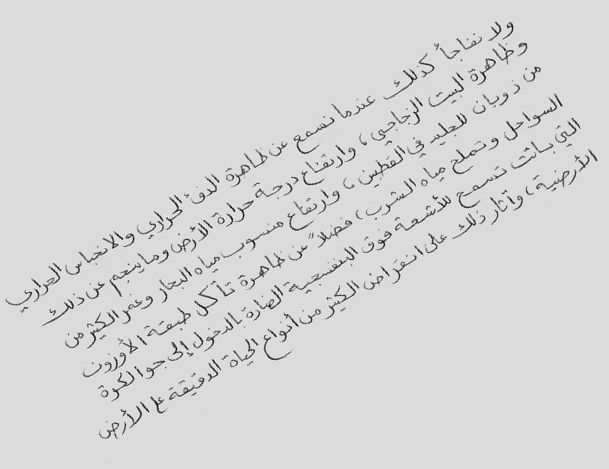 ولا نفاجأ كذلك عندما نسمع عن ظاهرة الدفئ الحراري والانحباس الحراري
وظاهرة البيت الزجاجي، وارتفاع درجة حرارة الأرض وما ينجم عن ذلك
من ذوبان للجليد في القطبين، وارتفاع منسوب مياه البحار وغمر الكثير من
السواحل وتملح مياه الشرب، فضلاً عن ظاهرة تآكل طبقة الأوزون
التي باتت تسمح للأشعة فوق البنفسجية الضارة بالدخول إلى جو الكرة
الأرضية، وآثار ذلك على انقراض الكثير من أنواع الحياة الدقيقة على الأرض